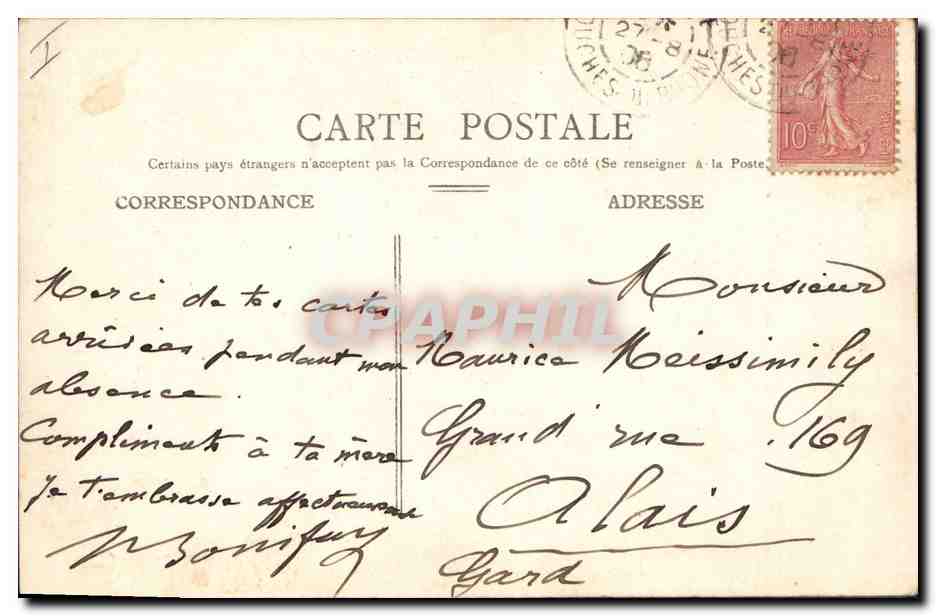 I
27-8
06
BOUCHES-DU-RHONE
REPUBLIQUE FRANÇAISE
10c
CARTE POSTALE
Certains pays étrangers n'acceptent pas la Correspondance de ce côté (Se renseigner à la Poste
CORRESPONDANCE
Merci de tes cartes
arrivées pendant mon
absence.
Compliments à ta mère
Je t'embrasse affectueusement
ADRESSE
Monsieur
Maurice Meissimily
Grand rue 169
Alais
Gard
CPAPHIL